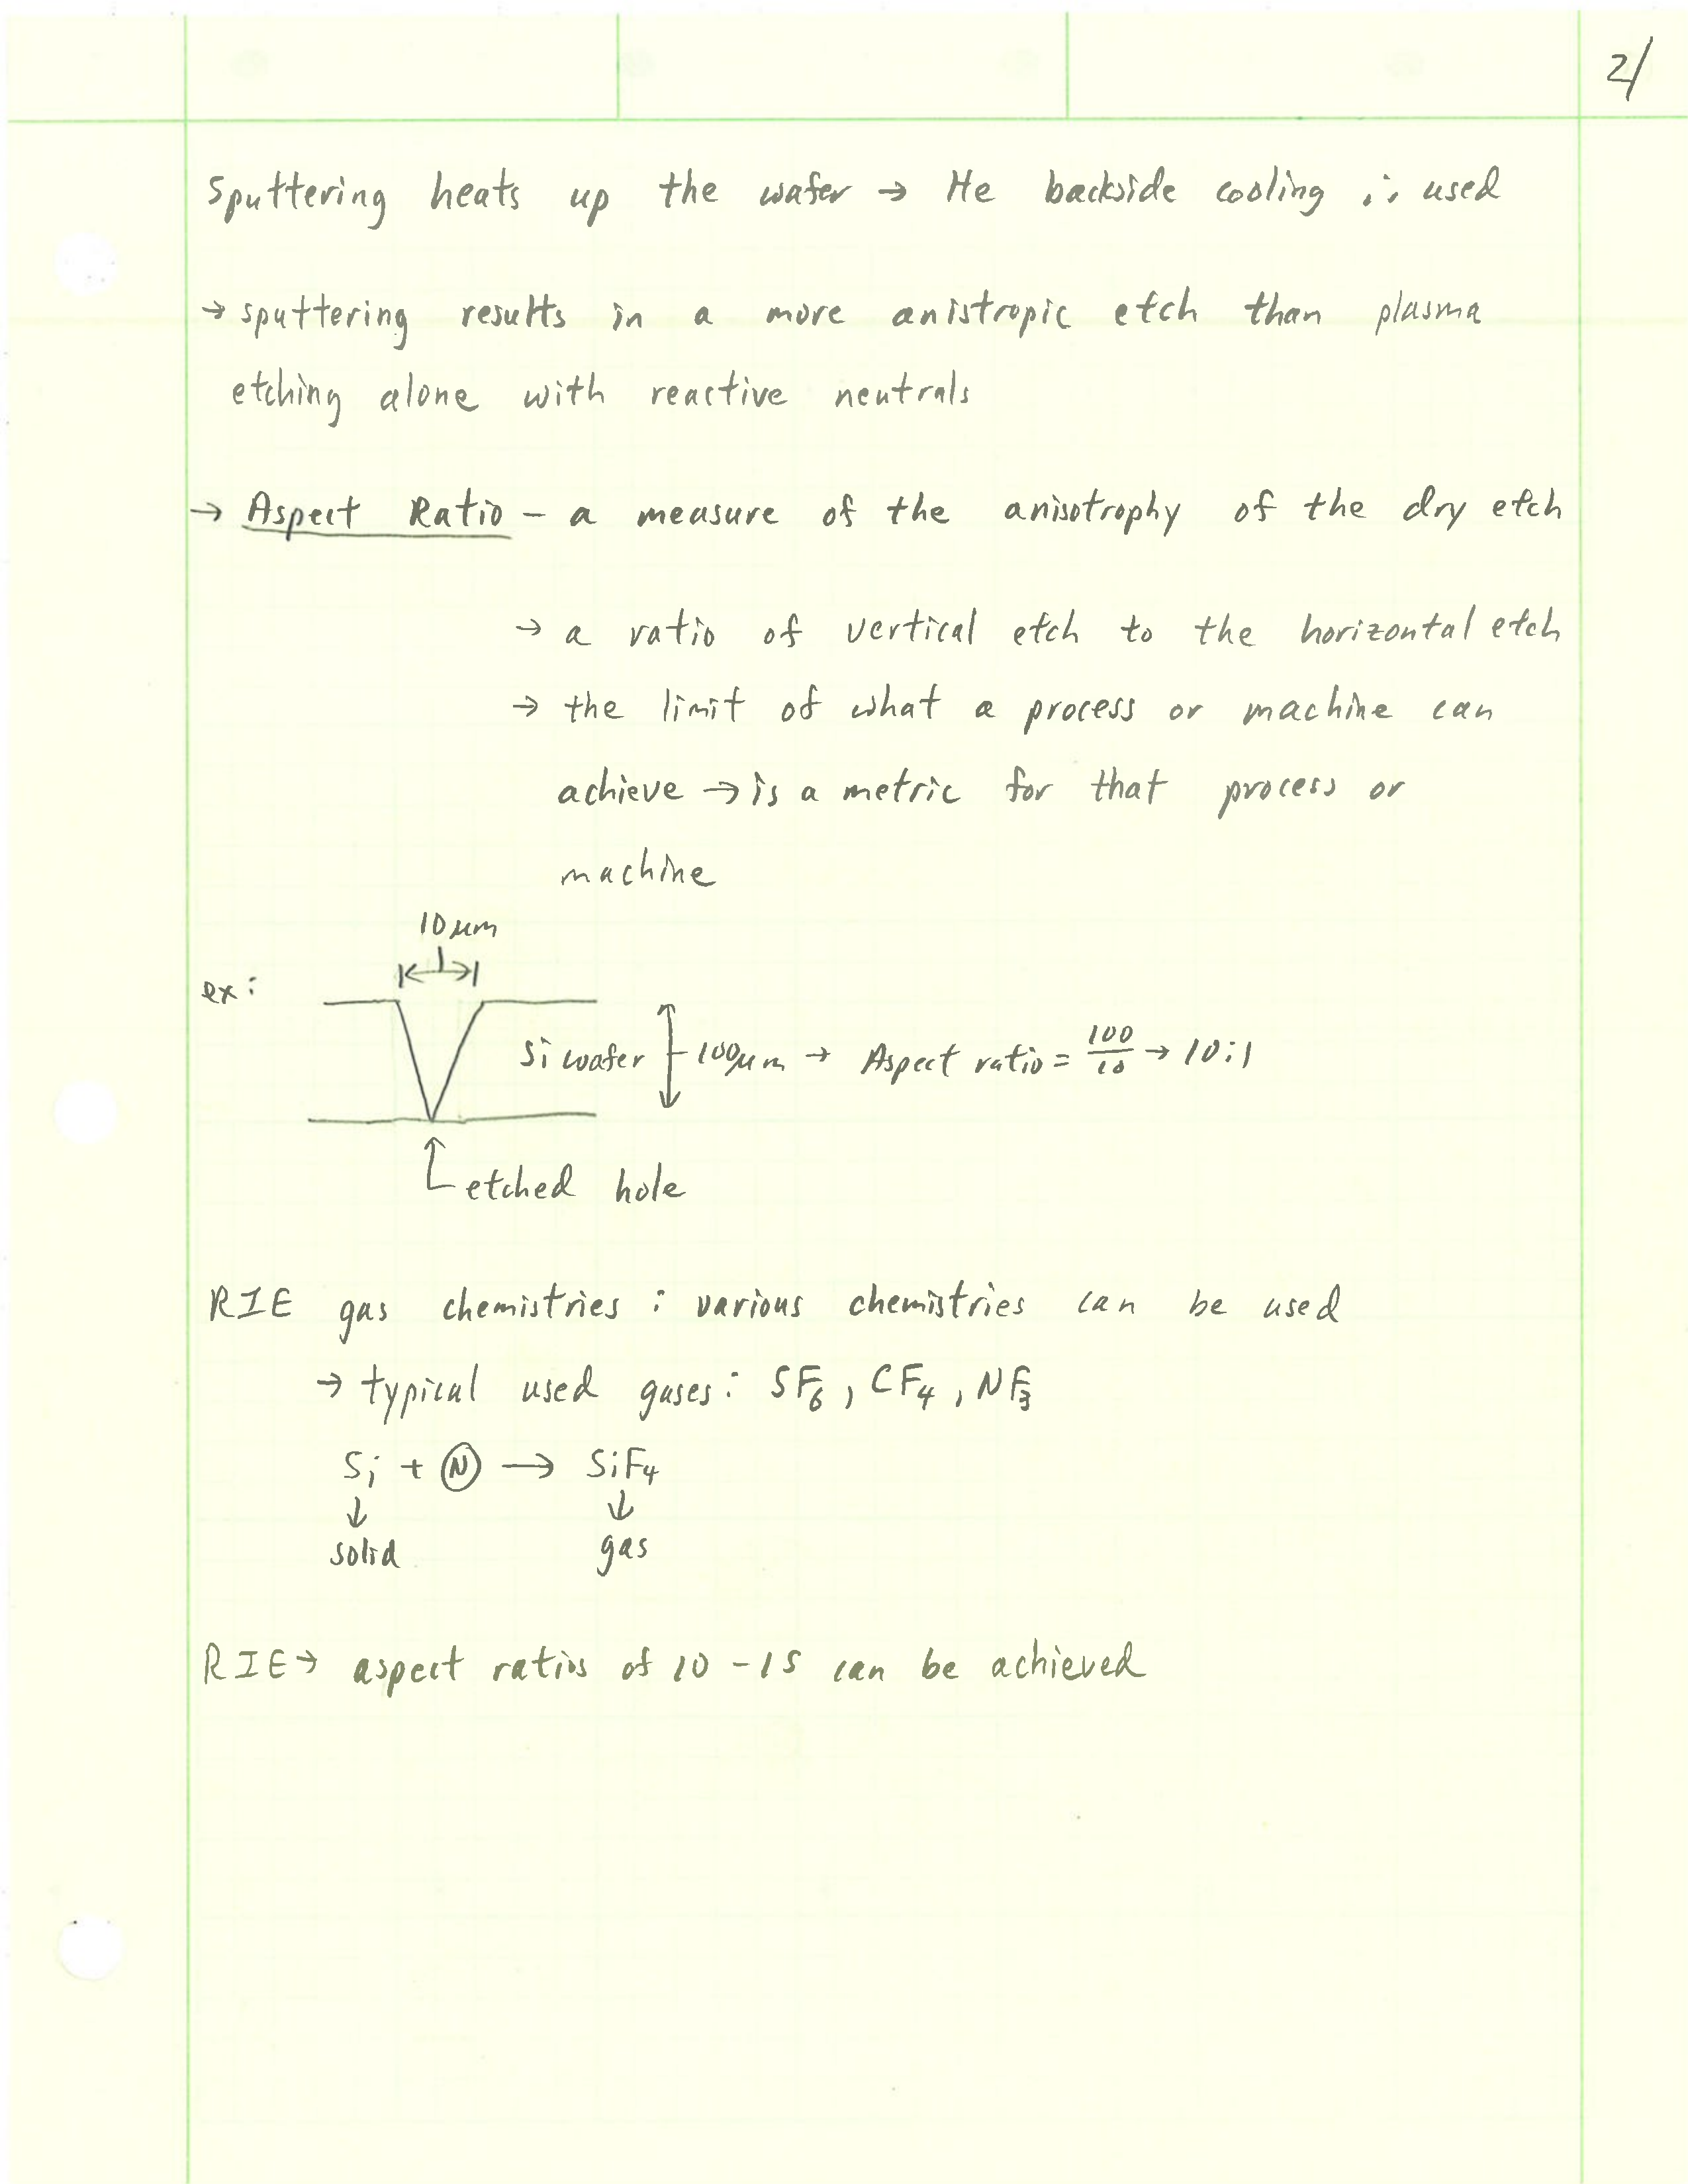 2/
Sputtering heats up the wafer → He backside cooling is used
→ sputtering results in a more anistropic etch than plasma
etching alone with reactive neutrals
→ Aspect Ratio – a measure of the anisotrophy of the dry etch
→ a ratio of vertical etch to the horizontal etch
→ the limit of what a process or machine can
achieve → is a metric for that process or
machine
10 µm
ex:
Si wafer 100µm → Aspect ratio = 100/10 → 10:1
etched hole
RIE gas chemistries : various chemistries can be used
→ typical used gases: SF₆, CF₄, NF₃
Si + Ⓝ → SiF₄
↓ ↓
solid gas
RIE → aspect ratios of 10 – 15 can be achieved